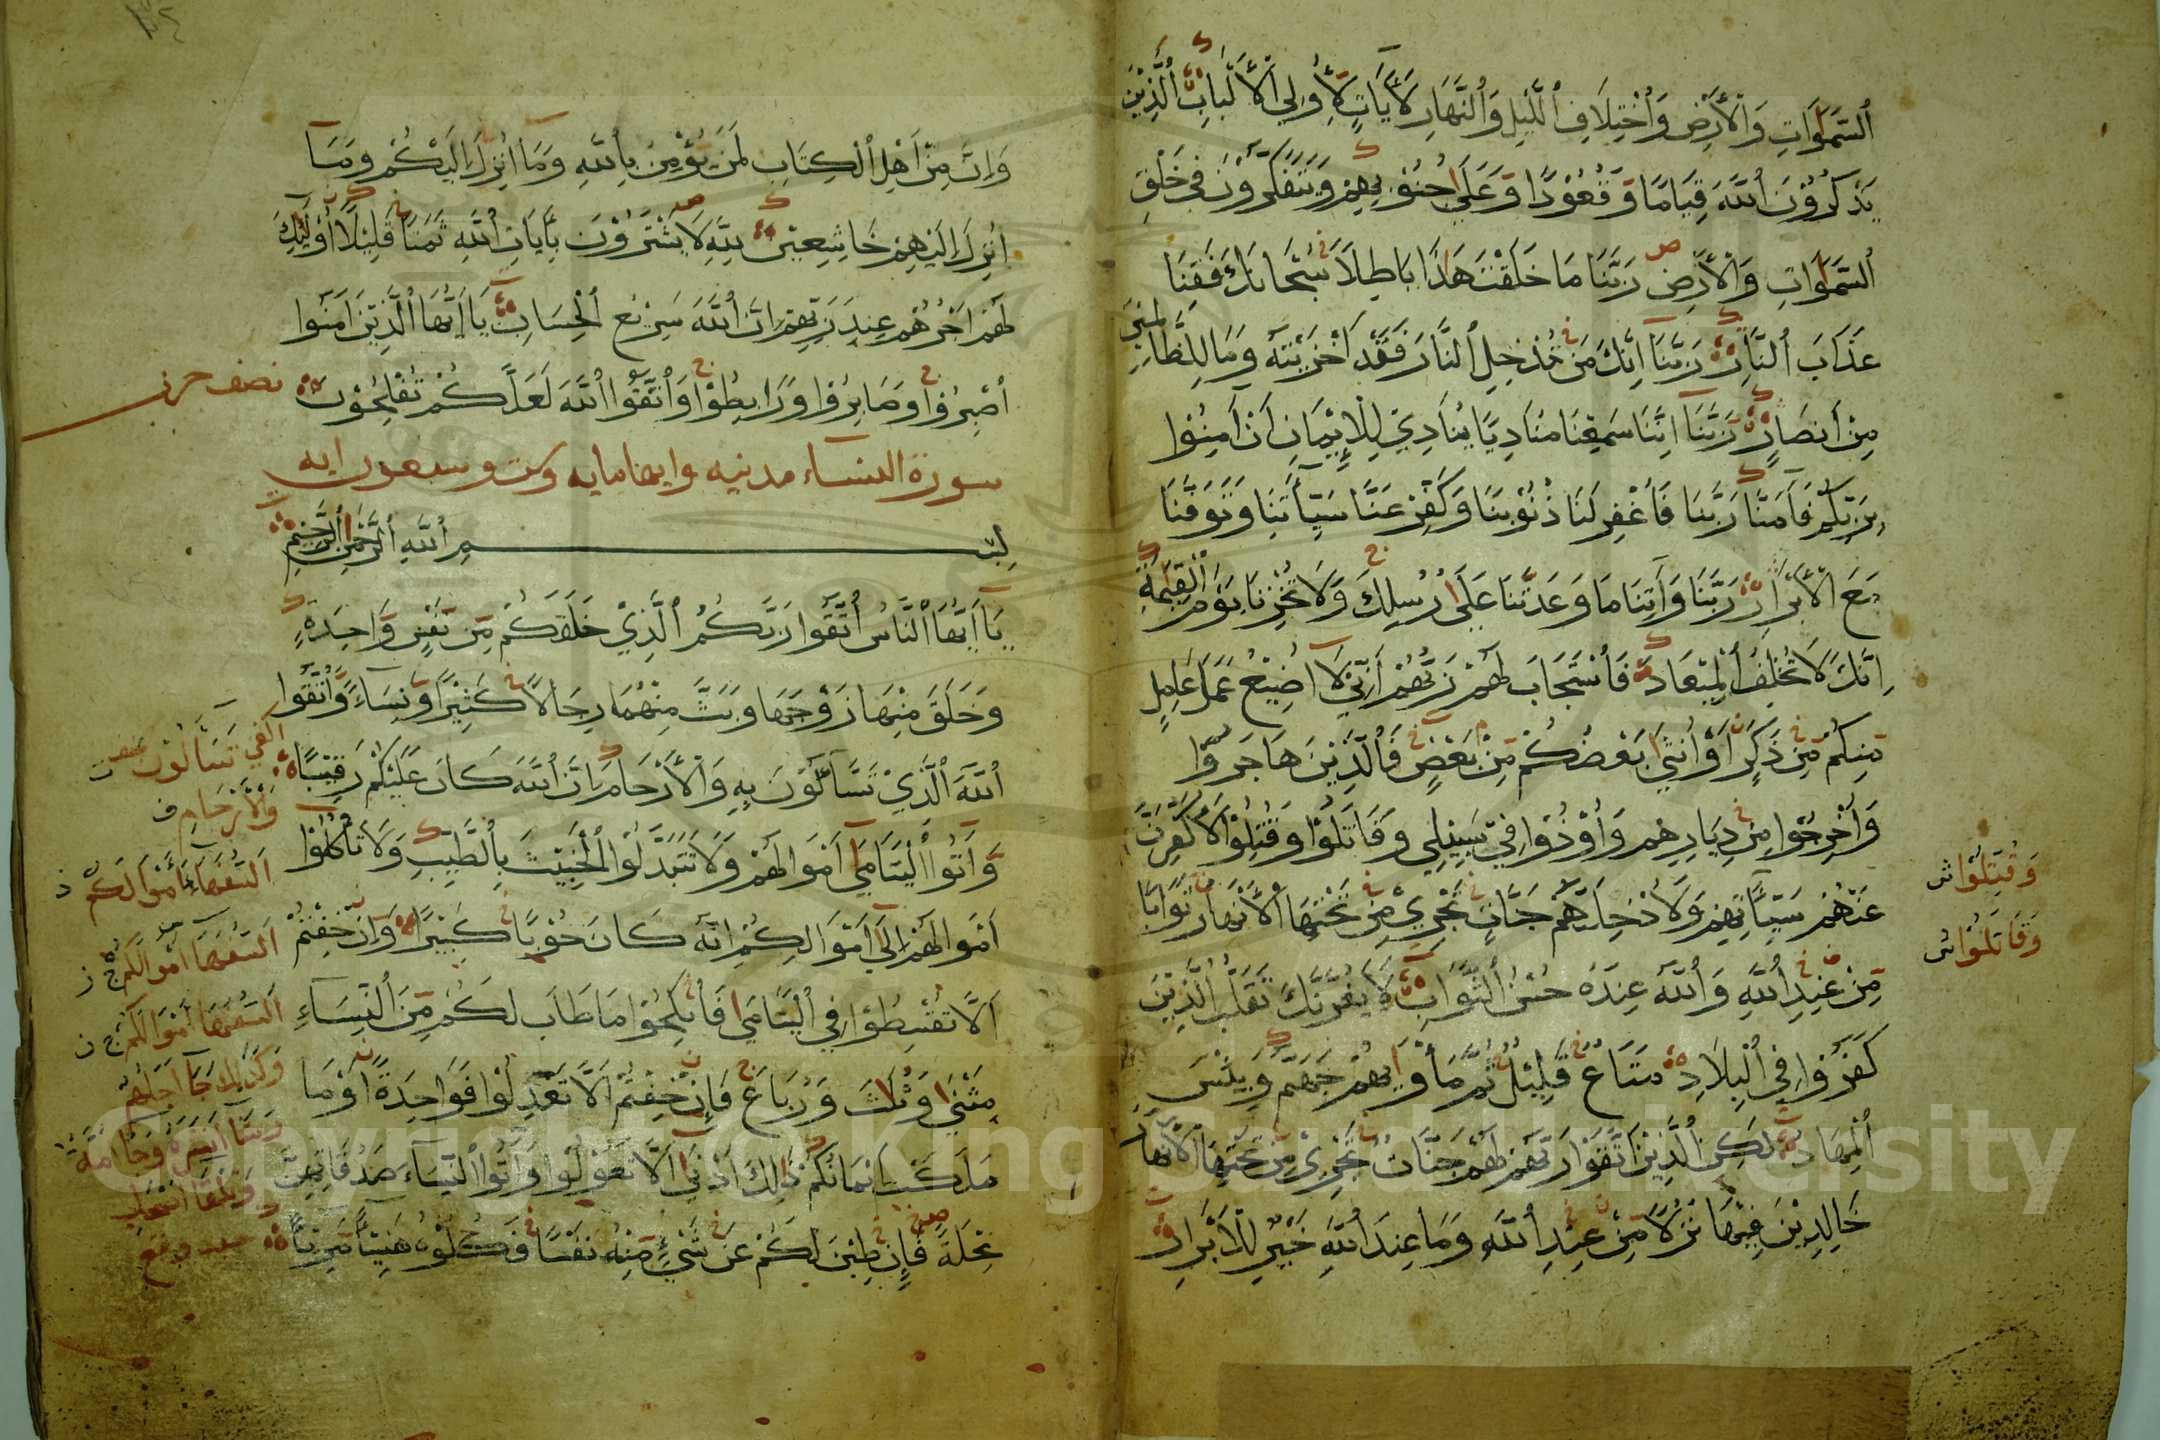 ٱلسَّمَوَاتِ وَٱلْأَرْضِ وَٱخْتِلَافِ ٱللَّيْلِ وَٱلنَّهَارِ لَآيَاتٍ لِأُولِي ٱلْأَلْبَابِ ٱلَّذِيْنَ
يَذْكُرُوْنَ ٱللَّهَ قِيَامًا وَقُعُوْدًا وَعَلَى جُنُوْبِهِمْ وَيَتَفَكَّرُوْنَ فِي خَلْقِ
ٱلسَّمَوَاتِ وَٱلْأَرْضِ رَبَّنَا مَا خَلَقْتَ هَذَا بَاطِلًا سُبْحَانَكَ فَقِنَا
عَذَابَ ٱلنَّارِ رَبَّنَا اِنَّكَ مَنْ تُدْخِلِ ٱلنَّارَ فَقَدْ اَخْزَيْتَهُ وَمَا لِلظَّالِمِيْنَ
مِنْ اَنْصَارٍ رَبَّنَا اِنَّنَا سَمِعْنَا مُنَادِيًا يُنَادِيْ لِلْإِيْمَانِ اَنْ اٰمِنُوْا
بِرَبِّكُمْ فَآمَنَّا رَبَّنَا فَٱغْفِرْ لَنَا ذُنُوْبَنَا وَكَفِّرْ عَنَّا سَيِّئَاتِنَا وَتَوَفَّنَا
مَعَ ٱلْأَبْرَارِ رَبَّنَا وَآتِنَا مَا وَعَدْتَنَا عَلَى رُسُلِكَ وَلَا تُخْزِنَا يَوْمَ ٱلْقِيَمَةِ
اِنَّكَ لَا تُخْلِفُ ٱلْمِيْعَادَ فَٱسْتَجَابَ لَهُمْ رَبُّهُمْ اَنِّيْ لَا اُضِيْعُ عَمَلَ عَامِلٍ
مِنْكُمْ مِنْ ذَكَرٍ اَوْ اُنْثَى بَعْضُكُمْ مِنْ بَعْضٍ فَٱلَّذِيْنَ هَاجَرُوْا
وَاُخْرِجُوْا مِنْ دِيَارِهِمْ وَاُوْذُوْا فِيْ سَبِيْلِي وَقَاتَلُوْا وَقُتِلُوْا لَأُكَفِّرَنَّ
وَقُتِلُوْا ش
عَنْهُمْ سَيِّئَاتِهِمْ وَلَأُدْخِلَنَّهُمْ جَنَّاتٍ تَجْرِيْ مِنْ تَحْتِهَا ٱلْأَنْهَارُ ثَوَابًا
وَقَاتَلُوْا ش
مِنْ عِنْدِ ٱللَّهِ وَٱللَّهُ عِنْدَهُ حُسْنُ ٱلثَّوَابِ لَا يَغُرَّنَّكَ تَقَلُّبُ ٱلَّذِيْنَ
كَفَرُوْا فِي ٱلْبِلَادِ مَتَاعٌ قَلِيْلٌ ثُمَّ مَأْوَاهُمْ جَهَنَّمُ وَبِئْسَ
ٱلْمِهَادُ لَكِنِ ٱلَّذِيْنَ ٱتَّقَوْا رَبَّهُمْ لَهُمْ جَنَّاتٌ تَجْرِيْ مِنْ تَحْتِهَا ٱلْأَنْهَارُ
خَالِدِيْنَ فِيْهَا نُزُلًا مِنْ عِنْدِ ٱللَّهِ وَمَا عِنْدَ ٱللَّهِ خَيْرٌ لِلْأَبْرَارِ
وَاِنَّ مِنْ اَهْلِ ٱلْكِتَابِ لَمَنْ يُؤْمِنُ بِٱللَّهِ وَمَا اُنْزِلَ اِلَيْكُمْ وَمَا
اُنْزِلَ اِلَيْهِمْ خَاشِعِيْنَ لِلَّهِ لَا يَشْتَرُوْنَ بِآيَاتِ ٱللَّهِ ثَمَنًا قَلِيْلًا اُولَئِكَ
لَهُمْ اَجْرُهُمْ عِنْدَ رَبِّهِمْ اِنَّ ٱللَّهَ سَرِيْعُ ٱلْحِسَابِ يَا اَيُّهَا ٱلَّذِيْنَ اٰمَنُوْا
ٱصْبِرُوْا وَصَابِرُوْا وَرَابِطُوْا وَٱتَّقُوا ٱللَّهَ لَعَلَّكُمْ تُفْلِحُوْنَ
نصف حزب
سورة النساء مدنيه وايها مايه وست وسبعون ايه
بِسْمِ ٱللَّهِ ٱلرَّحْمَنِ ٱلرَّحِيْمِ
يَا اَيُّهَا ٱلنَّاسُ ٱتَّقُوْا رَبَّكُمُ ٱلَّذِيْ خَلَقَكُمْ مِنْ نَفْسٍ وَاحِدَةٍ
وَخَلَقَ مِنْهَا زَوْجَهَا وَبَثَّ مِنْهُمَا رِجَالًا كَثِيْرًا وَنِسَاءً وَٱتَّقُوا
ٱللَّهَ ٱلَّذِيْ تَسَّآءَلُوْنَ بِهِ وَٱلْأَرْحَامَ اِنَّ ٱللَّهَ كَانَ عَلَيْكُمْ رَقِيْبًا
تَسَاءَلُوْنَ
وَٱلْأَرْحَامِ ف
وَآتُوا ٱلْيَتَامَى اَمْوَالَهُمْ وَلَا تَتَبَدَّلُوا ٱلْخَبِيْثَ بِٱلطَّيِّبِ وَلَا تَأْكُلُوْا
اَلسُّفَهَاءَ اَمْوَالَكُمُ
اَمْوَالَهُمْ اِلَى اَمْوَالِكُمْ اِنَّهُ كَانَ حُوْبًا كَبِيْرًا وَاِنْ خِفْتُمْ
اَلسُّفَهَا اَمْوَالَكُمُ
اَلَّا تُقْسِطُوْا فِي ٱلْيَتَامَى فَٱنْكِحُوْا مَا طَابَ لَكُمْ مِنَ ٱلنِّسَاءِ
اَلسُّفَهَا اَمْوَالَكُمُ
مَثْنَى وَثُلَثَ وَرُبَاعَ فَاِنْ خِفْتُمْ اَلَّا تَعْدِلُوْا فَوَاحِدَةً اَوْ مَا
وَكَذَلِكَ جَا اَجَلُهُمْ
مَلَكَتْ اَيْمَانُكُمْ ذَلِكَ اَدْنَى اَلَّا تَعُوْلُوْا وَآتُوا ٱلنِّسَاءَ صَدُقَاتِهِنَّ
نِحْلَةً فَاِنْ طِبْنَ لَكُمْ عَنْ شَيْءٍ مِنْهُ نَفْسًا فَكُلُوْهُ هَنِيْئًا مَرِيْئًا
Copyright © King Saud University